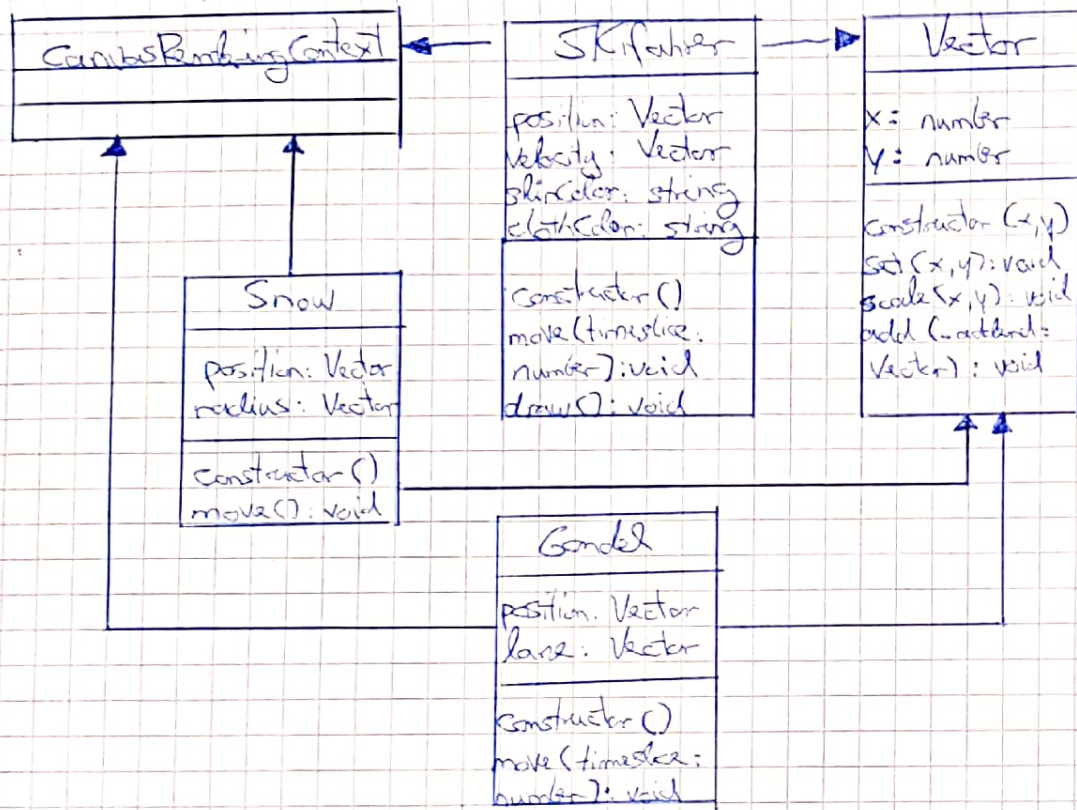 CanvasRenderingContext
Skifahrer
position: Vector
velocity: Vector
skinColor: string
clothColor: string
constructor ()
move (timeslice:
number): void
draw(): void
Vector
x: number
y: number
constructor (x,y)
set (x,y): void
scale (x,y): void
add (_addend:
Vector): void
Snow
position: Vector
radius: Vector
constructor ()
move(): void
Gondel
position: Vector
lane: Vector
constructor ()
move (timeslice:
number): void